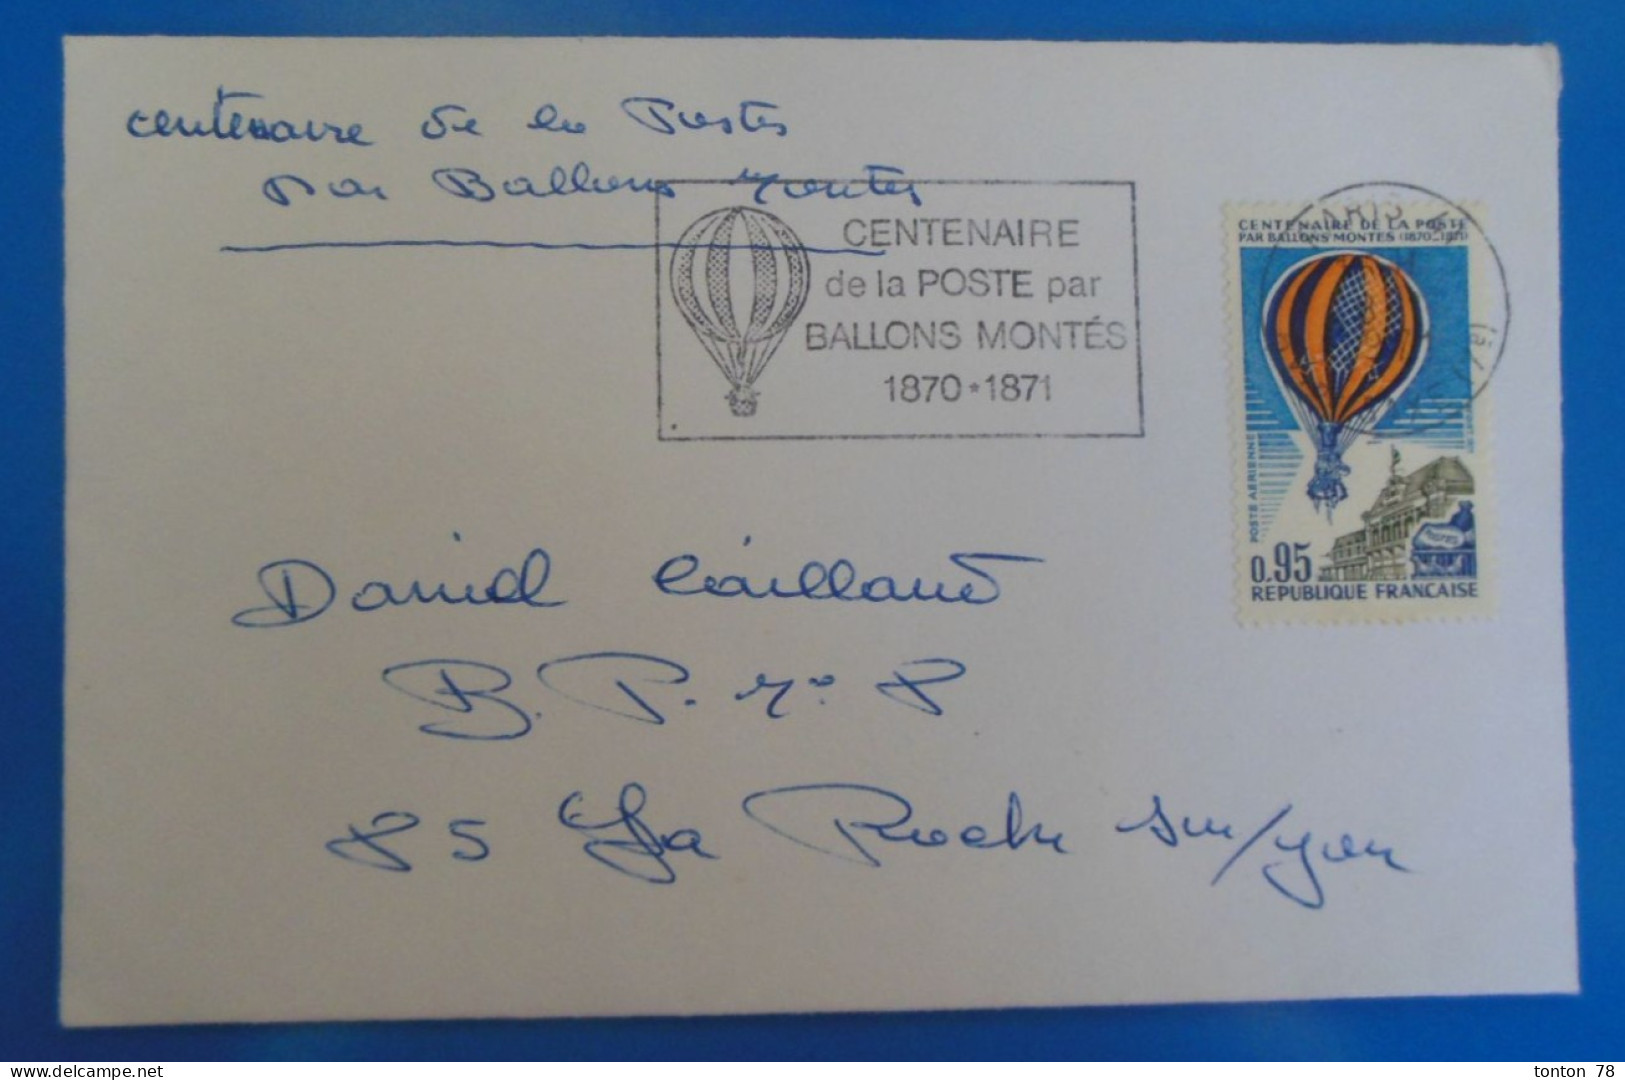 centenaire de la Poste
par Ballons Montés
CENTENAIRE
de la POSTE par
BALLONS MONTÉS
1870*1871
PARIS
CENTENAIRE DE LA POSTE
PAR BALLONS MONTÉS (1870-1871)
POSTE AERIENNE
POSTES
0,95
REPUBLIQUE FRANCAISE
Daniel Caillaud
B.P. no 8
85 La Roche sur/yon
tonton 78